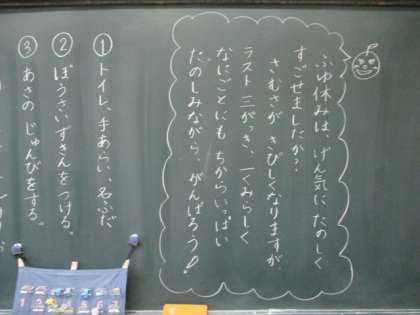 ふゆ休みは、げん気に たのしく
すごせましたか?
さむさが きびしくなりますが、
ラスト 三がっき、一てみらしく
なにごとにも ちからいっぱい
たのしみながら、がんばろう!
① トイレ、手あらい、名ふだ
② ぼうさいずきんをつける。
③ あさの じゅんびをする。